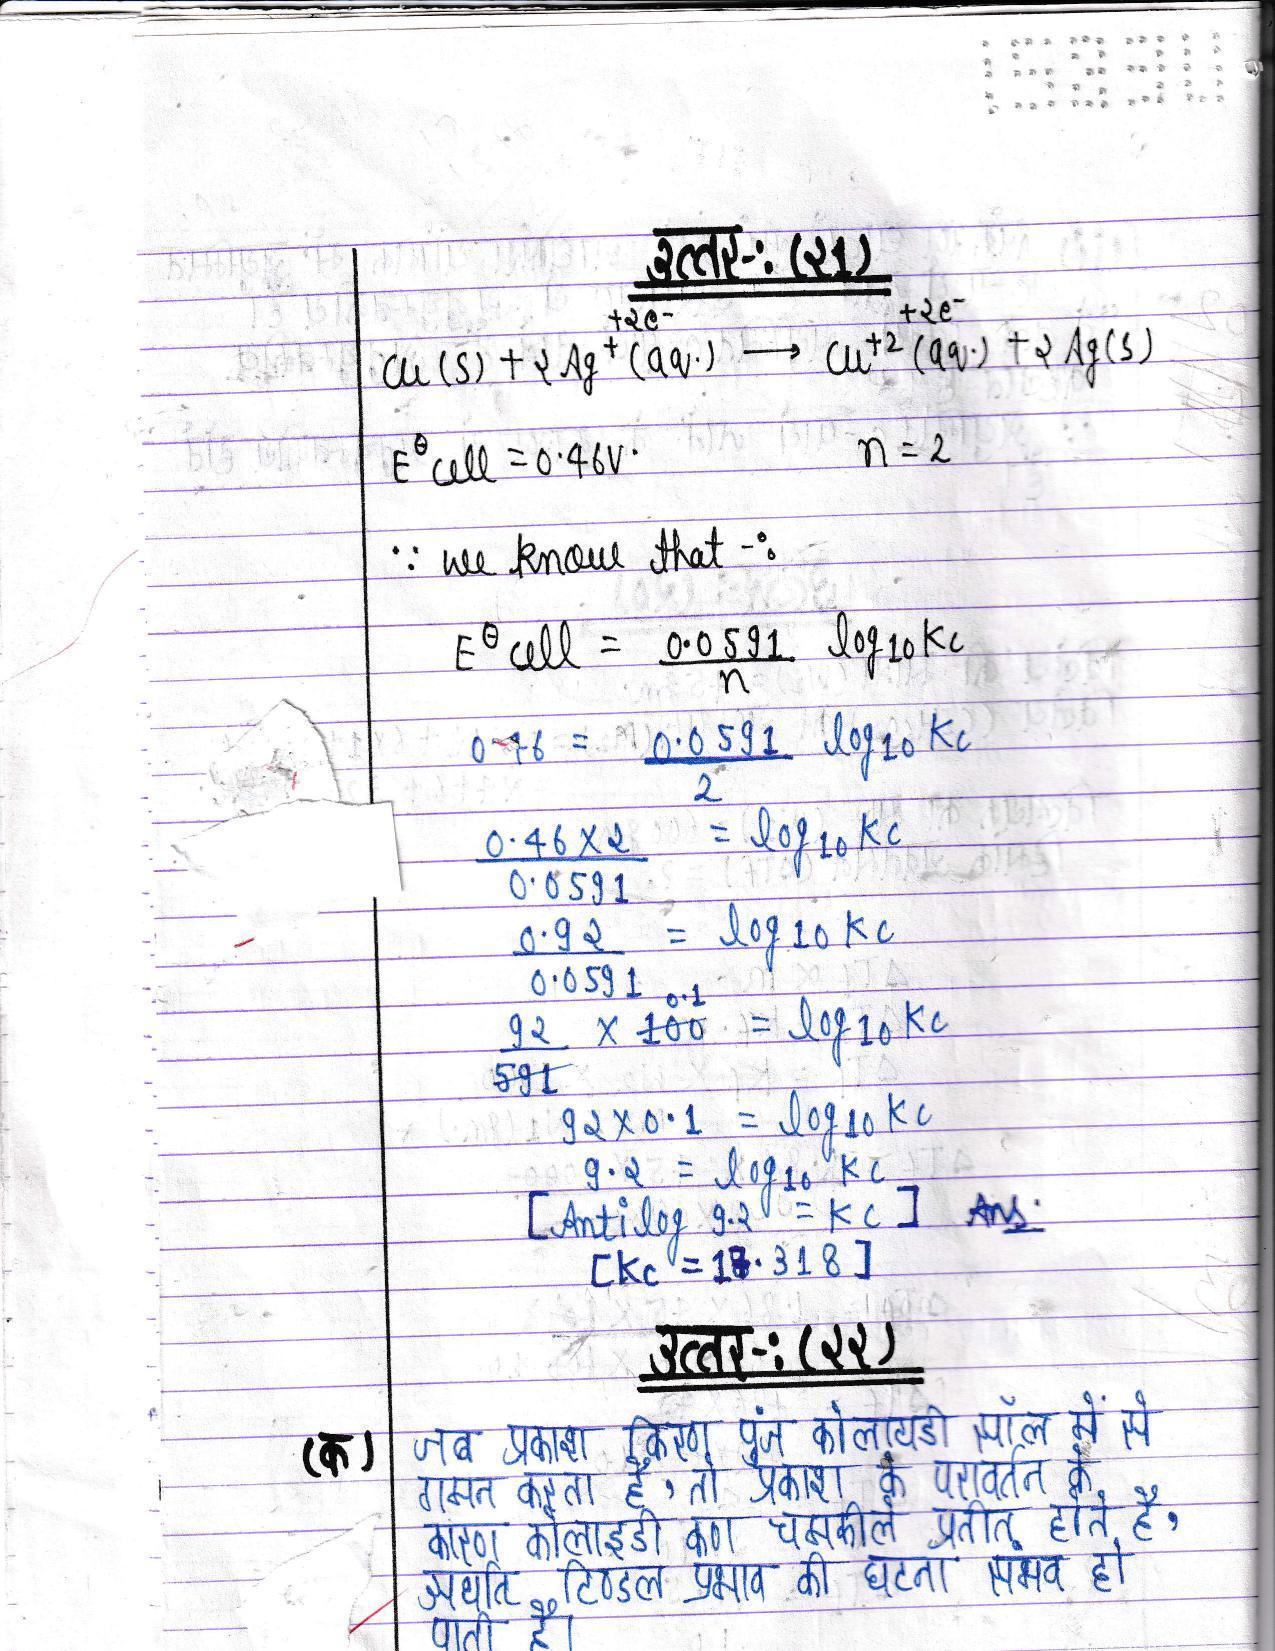 उत्तर-: (२1)
+२e⁻ +२e⁻
Cu (S) + २ Ag⁺ (aq.) ⟶ Cu⁺² (aq.) + २ Ag(s)
E⁰cell = 0.46V. n = 2
∵ we know that -:
E⁰cell = 0.0591/n log₁₀Kc
0.46 = 0.0591/2 log₁₀ Kc
0.46 x २/0.0591 = log₁₀ Kc
0.9२/0.0591 = log10 Kc
0.1
9२/591 x 100 = log₁₀ Kc
9२x0.1 = log₁₀Kc
9.२ = log₁₀ Kc
[Antilog 9.२ = Kc] Ans.
[Kc = 18.318]
उत्तर-: (२२)
(क) जब प्रकाश किरण पुंज कोलायडी सॉल में से
गमन करता है, तो प्रकाश के परावर्तन के
कारण कोलाइडी कण चमकीले प्रतीत होते है,
अर्थात टिण्डल प्रभाव की घटना संभव हो
पाती है।